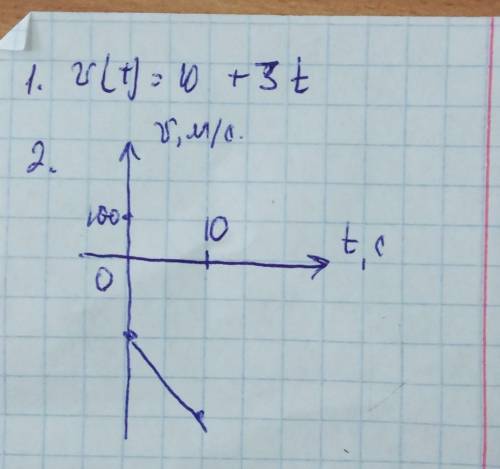 1. v(t) = 10 + 3t
2.
v, м/с.
100
10
t, с
0